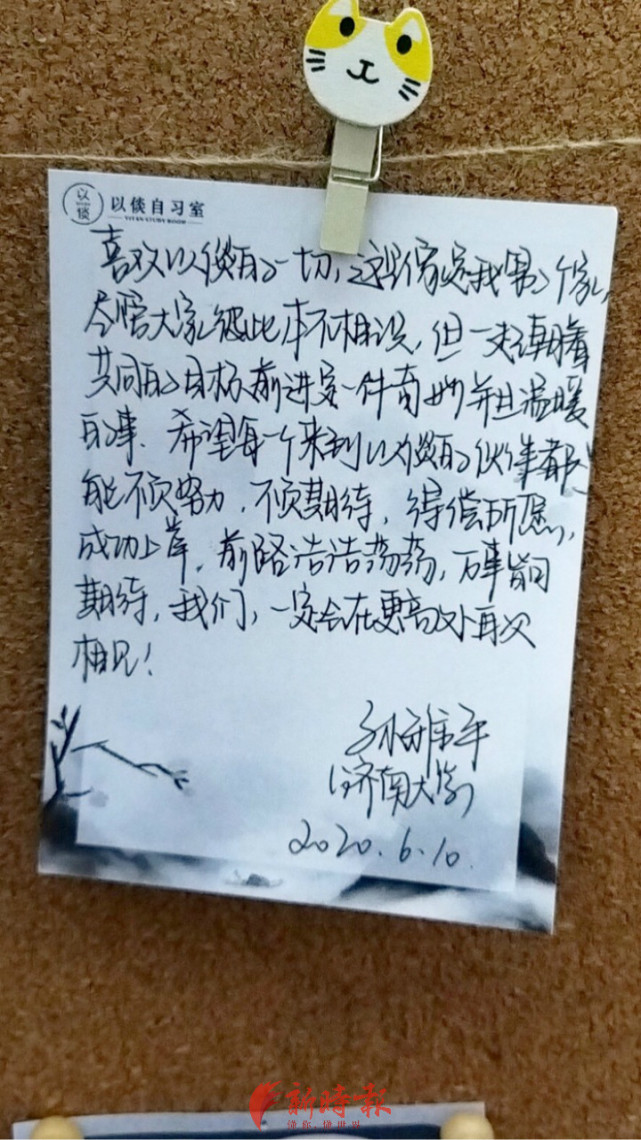 以倓
以倓自习室
YITAN STUDY ROOM
喜欢以倓的一切,这里像是我第2个家,
尽管大家彼此本不相识,但一起朝着
共同的目标前进是一件奇妙并且温暖
的事.希望每一个来到以倓的伙伴都
能不负努力.不负期待,得偿所愿,
成功上岸.前路浩浩荡荡,万事皆可
期待,我们,一定会在更高处再次
相见!
孙雅
(济南大学)
2020.6.10.
新時報
懂你·懂世界